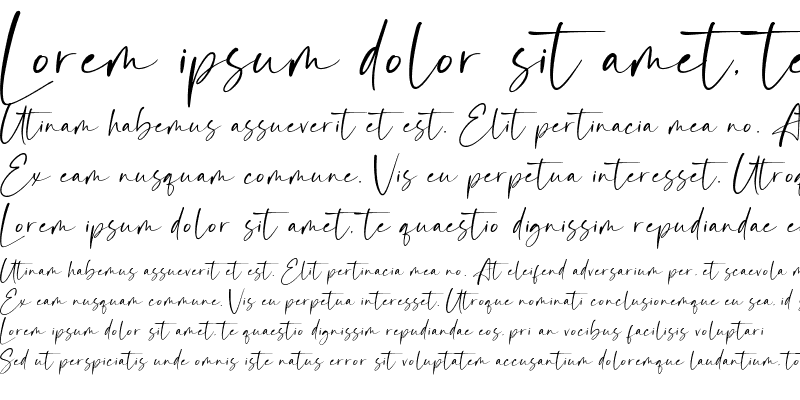 Lorem ipsum dolor sit amet, te
Utinam habemus assueverit et est. Elit pertinacia mea no. A
Ex eam nusquam commune. Vis eu perpetua interesset. Utroq
Lorem ipsum dolor sit amet, te quaestio dignissim repudiandae e
Utinam habemus assueverit et est. Elit pertinacia mea no. At eleifend adversarium per, et scaevola m
Ex eam nusquam commune. Vis eu perpetua interesset. Utroque nominati conclusionemque eu sea, id
Lorem ipsum dolor sit amet, te quaestio dignissim repudiandae eos, pri an vocibus facilisis voluptari
Sed ut perspiciatis unde omnis iste natus error sit voluptatem accusantium doloremque laudantium, to